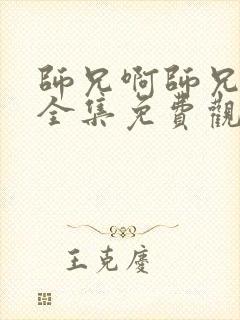 師兄啊師兄
全集免費觀
王克慶